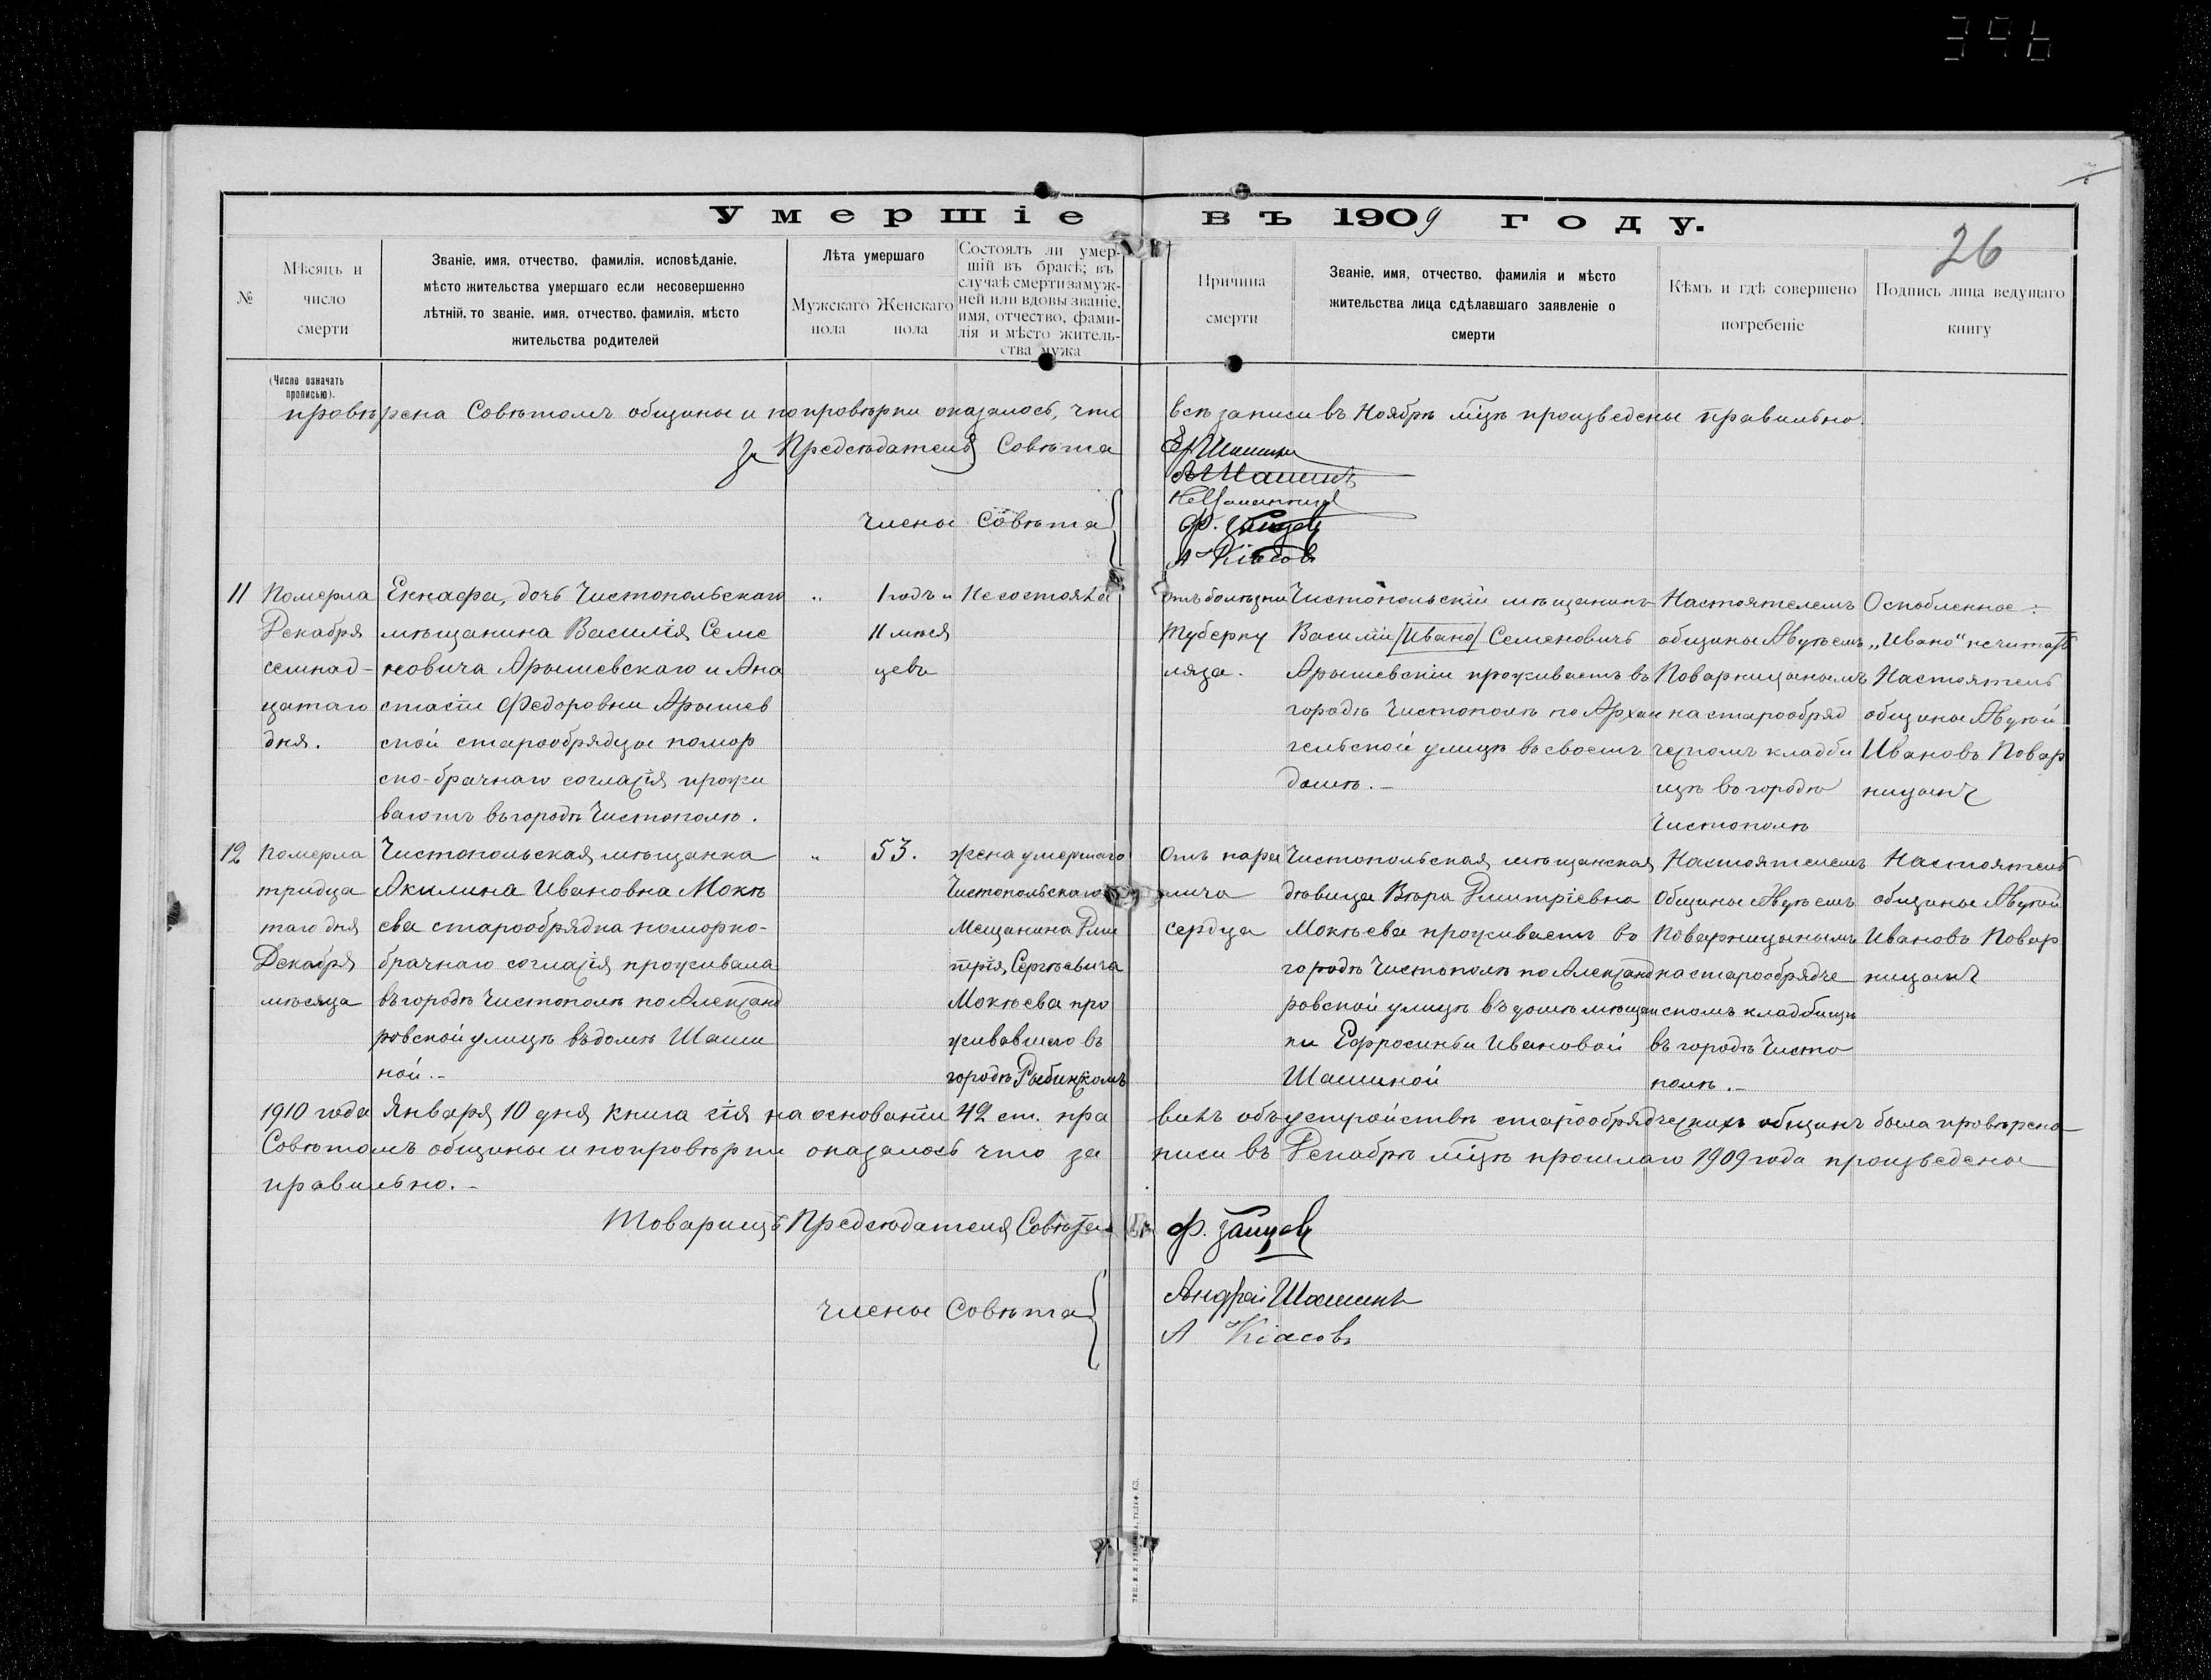 396
Умершіе въ 1909 году.
26
№
Мѣсяцъ и
число
смерти
Званіе, имя, отчество, фамилія, исповѣданіе,
мѣсто жительства умершаго если несовершенно
лѣтній, то званіе, имя, отчество, фамилія, мѣсто
жительства родителей
Лѣта умершаго
Мужскаго
пола
Женскаго
пола
Состоялъ ли умер-
шій въ бракѣ; въ
случаѣ смерти замуж-
ней или вдовы званіе,
имя, отчество, фами-
лія и мѣсто житель-
ства мужа
Причина
смерти
Званіе, имя, отчество, фамилія и мѣсто
жительства лица сдѣлавшаго заявленіе о
смерти
Кѣмъ и гдѣ совершено
погребеніе
Подпись лица ведущаго
книгу
(Число означать
прописью).
провѣрена Совѣтомъ общины и по провѣрки оказалось, что всѣ записи въ Ноябрѣ мцѣ произведены правильно.
За Предсѣдателя Совѣта
Шашинъ
Члены Совѣта
Ф. Зайцев
А Кіасовъ
11
Померла
Декабря
семнад-
цатаго
дня.
дочь Чистопольскаго
мѣщанина Василія Семе
новича Арышевскаго и Ана
стасіи Федоровни Арышев
ской старообрядцы помор
ско-брачнаго согласія прожи
ваютъ въ городѣ Чистополѣ.
"
1 годъ и
11 мѣся
цевъ
Не состояла
отъ болѣзни
Туберку
лѣза.
Чистопольскій мѣщанинъ
Василій /Ивано/ Семеновичъ
Арышевскій проживаетъ въ
городѣ Чистополѣ по Архан
гельской улицѣ въ своемъ
домѣ.-
Настоятелемъ
общины Авдѣемъ
Поварницынымъ
на старообряд
ческомъ кладби
щѣ въ городѣ
Чистополѣ
Оскобленное :
„Ивано" не читать
Настоятель
общины Авдѣй
Ивановъ Повар
ницынъ
12
Померла
тридца
таго дня
Декабря
мѣсяца
Чистопольская мѣщанка
Акилина Ивановна Мокѣ
ева старообрядка поморко-
брачнаго согласія проживала
въ городѣ Чистополѣ по Александ
ровской улицѣ въ домѣ Шаши
ной.-
"
53.
жена умершаго
Чистопольскаго
Мещанина Дми
трія Сергѣевича
Мокѣева про
живавшаго въ
городѣ Рыбинскомъ
Отъ пара
лича
сердца
Чистопольская мѣщанская
дѣвица Вѣра Дмитріевна
Мокѣева проживаетъ въ
городѣ Чистополѣ по Александ
ровской улицѣ въ домѣ мѣщан
ки Ефросиньи Ивановой
Шашиной
Настоятелемъ
Общины Авдѣемъ
Поварницынымъ
на старообрядче
скомъ кладбищѣ
въ городѣ Чисто
полѣ.-
Настоятель
общины Авдѣй
Ивановъ Повар
ницынъ
1910 года Января 10 дня книга сія на основаніи 42 ст. правилъ объ устройствѣ старообрядческихъ общинъ была провѣрена
Совѣтомъ общины и по провѣрки оказалось что записи въ Декабрѣ мцѣ прошлаго 1909 года произведены
правильно.-
Товарищъ Предсѣдателя Совѣта
Ф. Зайцев
Члены Совѣта
Андрей Шашинъ
А Кіасовъ